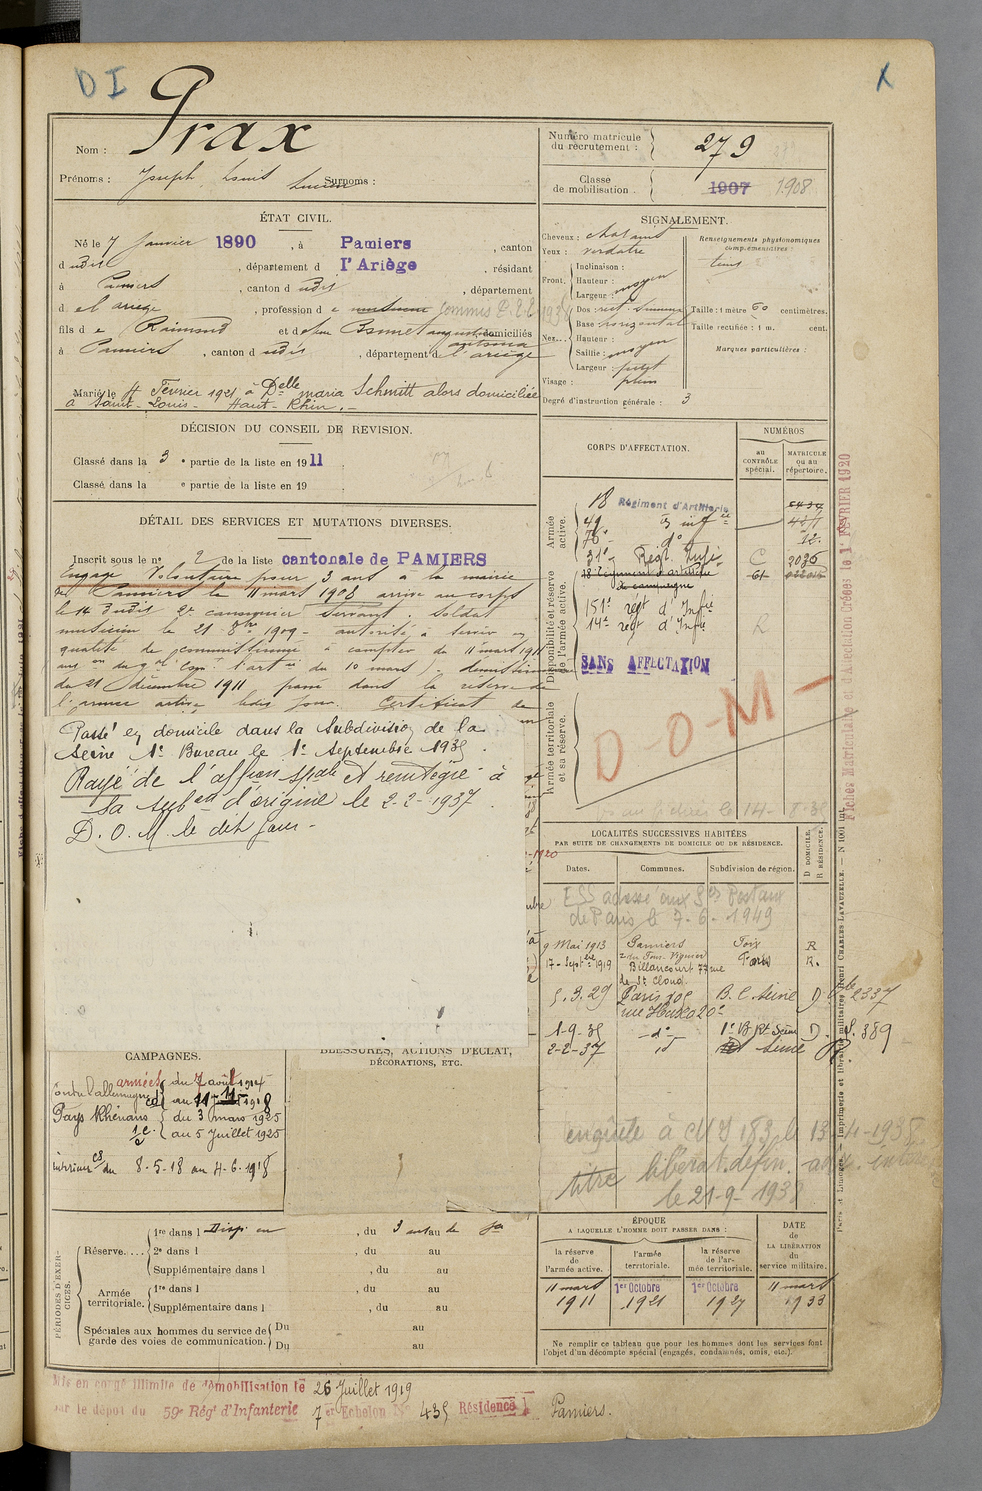 D I
X
Nom : Prax
Prénoms : Joseph, Louis Lucien Surnoms :
Numéro matricule du recrutement : 279
Classe de mobilisation . 1907 1908
ÉTAT CIVIL.
Né le 7 Janvier 1890 , à Pamiers , canton
d udit , département d l'Ariège , résidant
à Pamiers , canton d udit , département
d el ariege , profession d e musicien Commis P.T.T 1934
fils d e Raimond et d domiciliés
à Pamiers , canton d udit , département d e l'ariège
Marié le Février 1921 à Delle maria Schmitt alors domiciliée
à Saint-Louis - Haut-Rhin .-
SIGNALEMENT.
Cheveux : chatains
Yeux : verdatre
Front. Inclinaison :
Hauteur : moyen
Largeur :
Nez... Dos : rect. sinueux
Base horizontal
Hauteur :
Saillie : moyen
Largeur : petit
Visage : plein
Degré d'instruction générale : 3
Renseignements physionomiques complémentaires :
Taille : 1 mètre 60 centimètres.
Taille rectifiée : 1 m. cent.
Marques particulières :
DÉCISION DU CONSEIL DE REVISION.
Classé dans la 3 e partie de la liste en 1911 .
Classé dans la e partie de la liste en 19 .
DÉTAIL DES SERVICES ET MUTATIONS DIVERSES.
Inscrit sous le n° 2 de la liste cantonale de PAMIERS
Engagé Volontaire pour 3 ans à la mairie
de Pamiers le 11 mars 1908 arrivé au corps
le 14 dudit 2e canonnier servant, soldat
musicien le 21 8bre 1909 - autorisé à servir en
qualité de commissionné à compter du 11 mars 1911
du 10 mars) - démissionnaire
du 21 décembre 1911 passé dans la réserve de
l'armée active ledit jour. Certificat de
Passé en domicile dans la Subdivision de la
Seine 1er Bureau le 1er Septembre 1935 .
Rayé de l'affon spale et réintégré à
sa subon d'origine le 2-2-1937 .
D. O. M. le dit jour -
CORPS D'AFFECTATION.
NUMÉROS
au CONTRÔLE spécial.
MATRICULE ou au répertoire.
Armée active.
18 Régiment d'Artillerie
49 " inf ie
76e - do 12.
Disponibilité et réserve de l'armée active.
31e - Régt Infie C 2036
18 Régiment d'artillerie de campagne 61
151e régt d'Infie
14e régt d'Infie R
SANS AFFECTATION
Armée territoriale et sa réserve.
D-O-M-
Fiches Matriculaire et d'affectation Créées le 1er FÉVRIER 1920
LOCALITÉS SUCCESSIVES HABITÉES
PAR SUITE DE CHANGEMENTS DE DOMICILE OU DE RÉSIDENCE.
Dates. Communes. Subdivision de région. D DOMICILE. R RÉSIDENCE.
ESS adressé aux Ses Postaux
de Paris le 7-6-1949
9 Mai 1913 Pamiers Foix R
17 - Septbre 1919 Billancourt 77 rue de St Cloud. Paris R.
5.3.29 Paris 105 rue Haxo 20e B.C. Seine D 2337
1-9-35 - do - 1er B Rt Seine D. S. 389
2-2-37 id Seine R
enquête à 183 le 13-4-1938
titre libérat. défin.
le 21-9-1938
CAMPAGNES.
Contre l'allemagne armées du 7 août 1914
au 11-11-1918
Pays Rhénans du 3 mars 1925
au 5 Juillet 1925
intérieur cs du 8-5-18 au 4-6-1918
BLESSURES, ACTIONS D'ÉCLAT,
DÉCORATIONS, ETC.
PÉRIODES D'EXERCICES.
Réserve.... 1re dans l Disp. en , du 3 au
2e dans l , du au
Supplémentaire dans l , du au
Armée territoriale. 1re dans l , du au
Supplémentaire dans l , du au
Spéciales aux hommes du service de garde des voies de communication. Du au
Du au
ÉPOQUE
A LAQUELLE L'HOMME DOIT PASSER DANS :
la réserve de l'armée active. l'armée territoriale. la réserve de l'armée territoriale.
DATE de LA LIBÉRATION du service militaire.
11 mars 1911 1er Octobre 1921 1er Octobre 1927 11 mars 1933
Ne remplir ce tableau que pour les hommes dont les services font
l'objet d'un décompte spécial (engagés, condamnés, omis, etc.).
Paris et Limoges. — Imprimerie et librairie militaires Henri CHARLES-LAVAUZELLE. — N 1001
Mis en congé illimité de démobilisation le 26 Juillet 1919
par le dépôt du 59e Régt d'Infanterie 7e Echelon N° 435 Résidence Pamiers.